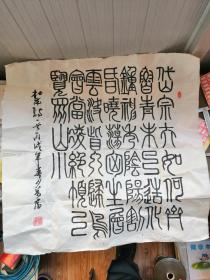 岱宗夫如何齊
魯青未了造化
鍾神秀陰陽割
昏曉蕩胸生層
雲決眥入歸鳥
會當凌絕頂一
覽眾山小
丙戌年